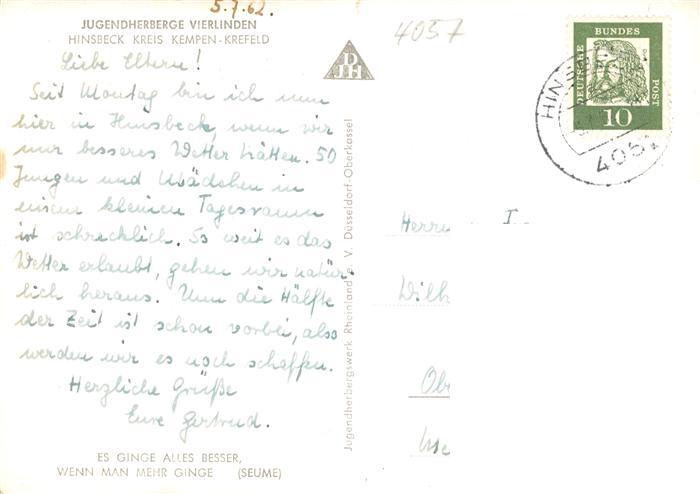 5.7.62.
JUGENDHERBERGE VIERLINDEN
HINSBECK KREIS KEMPEN-KREFELD
Liebe Eltern!
Seit Montag bin ich nun
hier in Hinsbeck, wenn wir
nur besseres Wetter hätten. 50
Jungen und Mädchen in
einem kleinen Tagesraum
ist schrecklich. So weit es das
Wetter erlaubt, gehen wir natür-
lich heraus. Um die Hälfte
der Zeit ist schon vorbei, also
werden wir es noch schaffen.
Herzliche Grüße
Eure Gertrud.
ES GINGE ALLES BESSER,
WENN MAN MEHR GINGE (SEUME)
DJH
Jugendherbergswerk Rheinland e. V. Düsseldorf-Oberkassel
4057
DEUTSCHE
BUNDES
POST
10
HINS
405
Herrn I.
Wilh
Ob